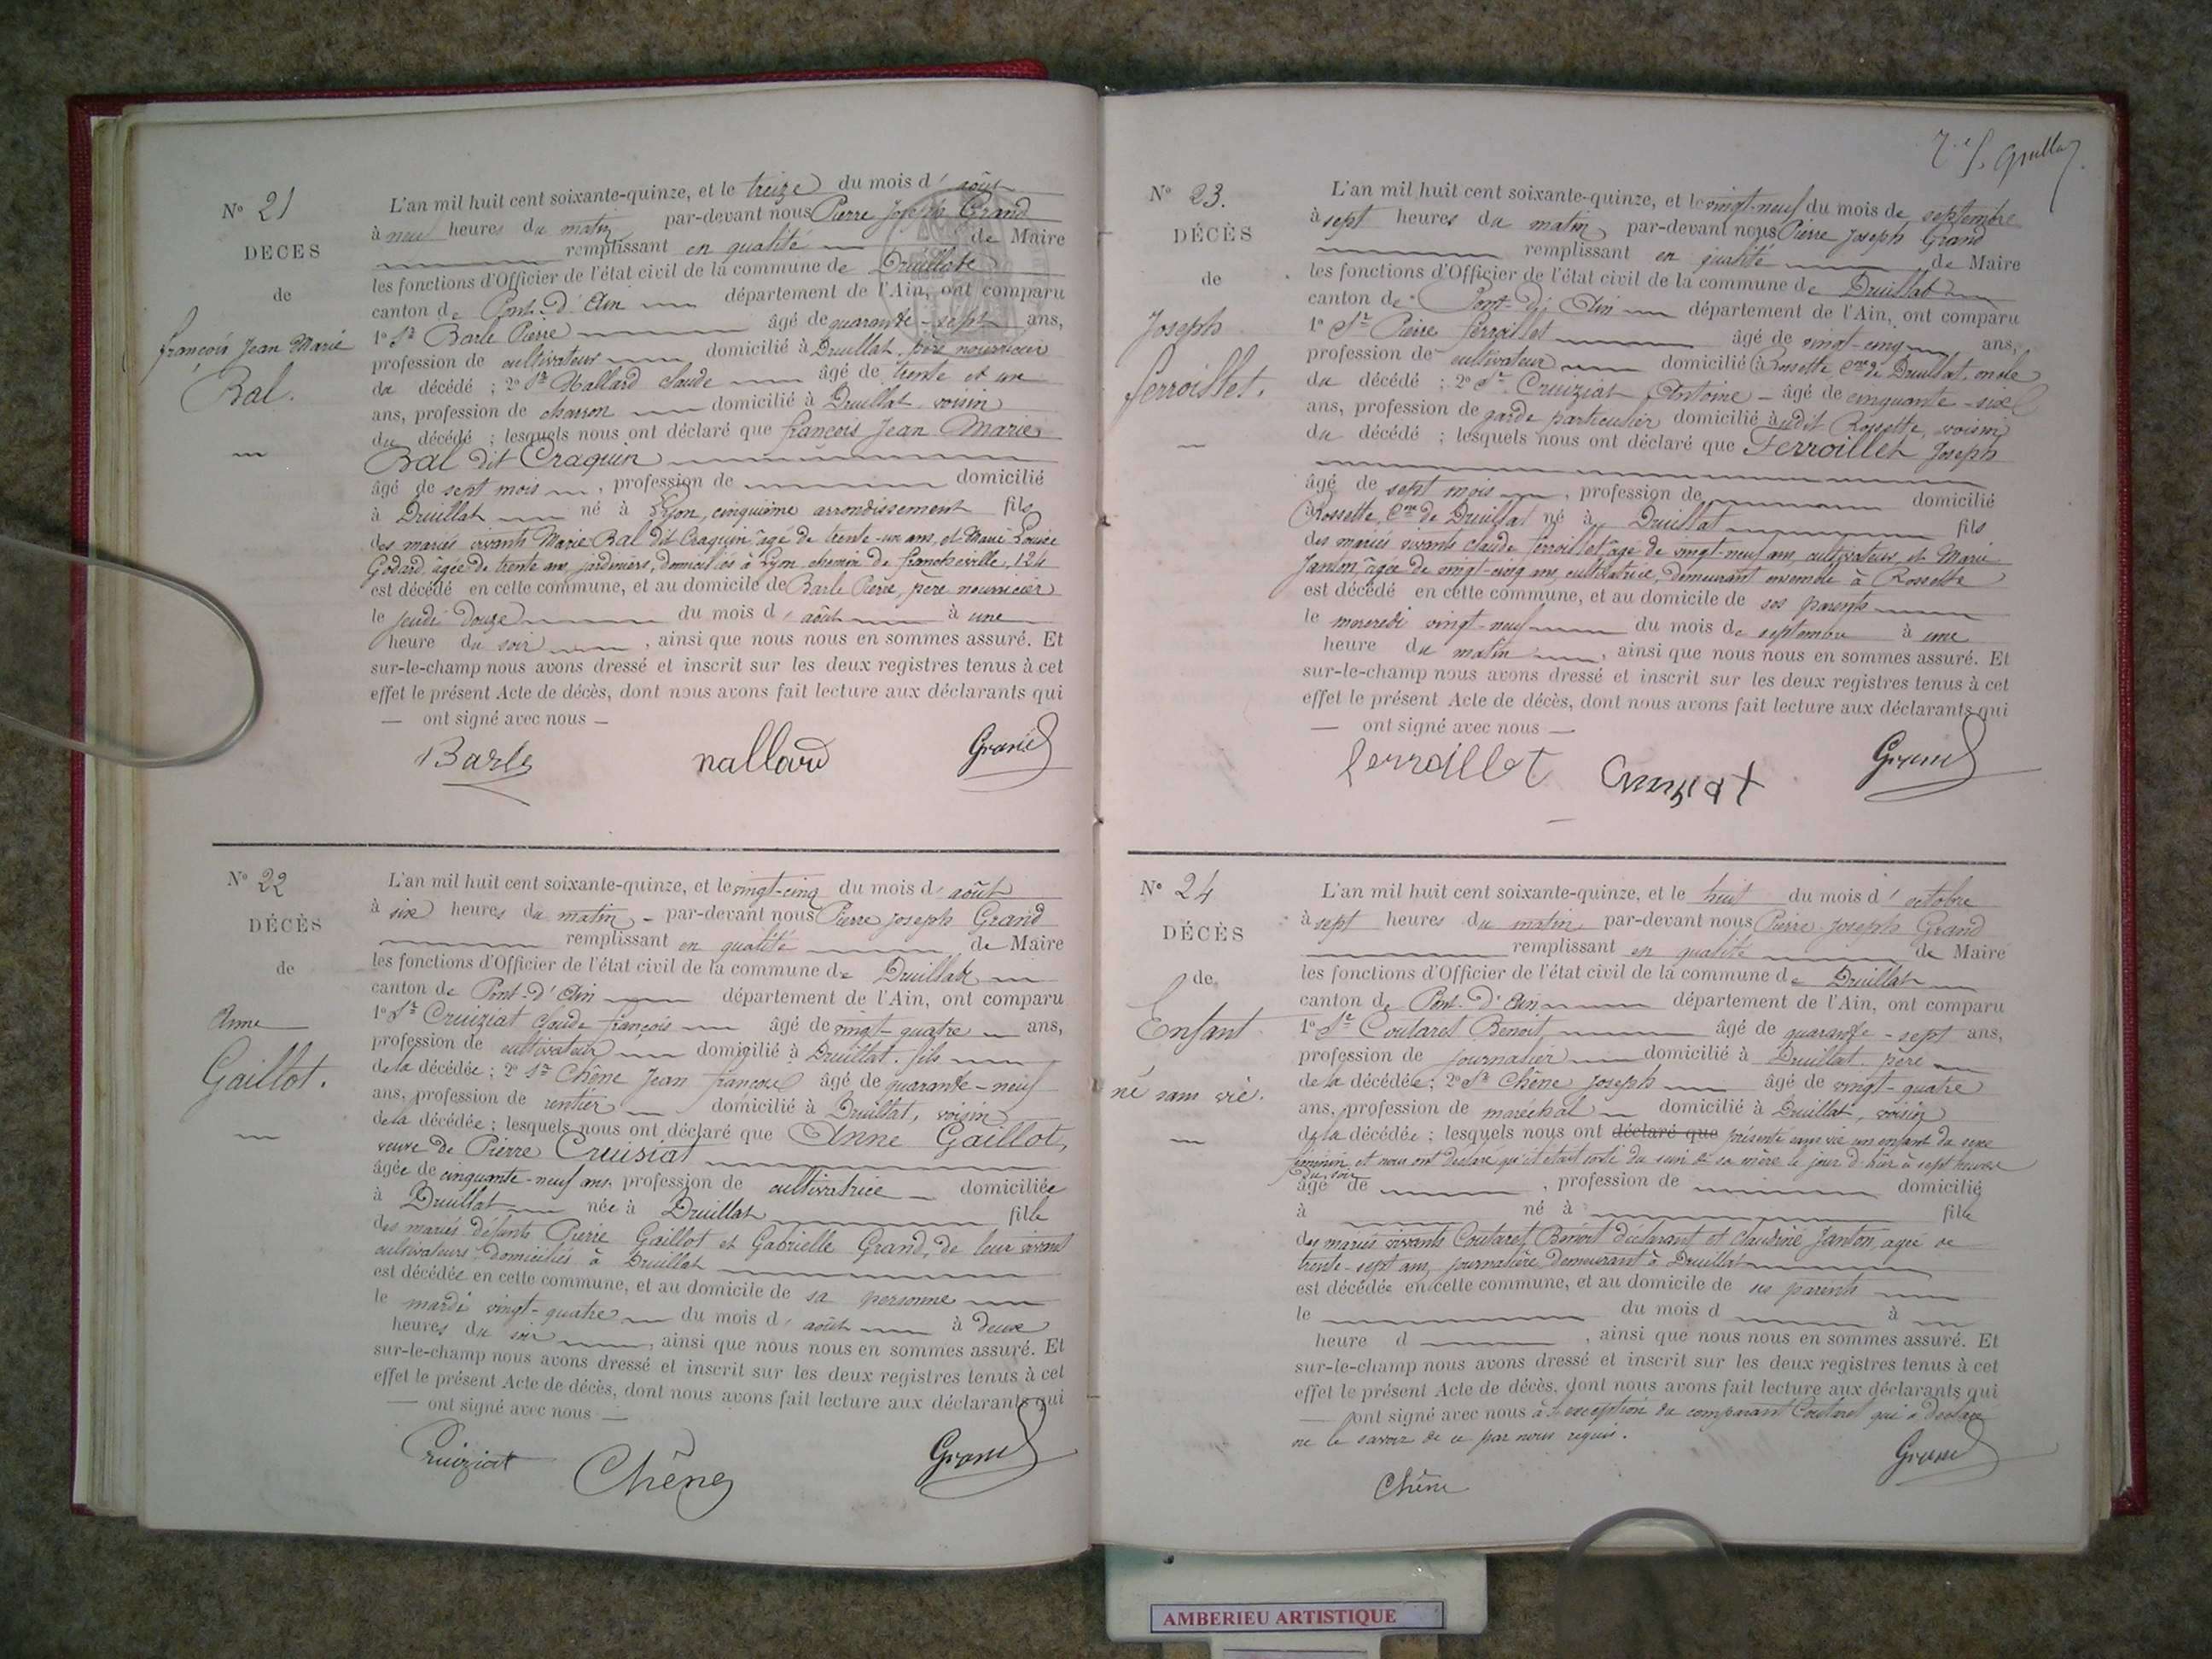 N° 21
DECES
de
françois Jean Marie
Bal.
L'an mil huit cent soixante-quinze, et le treize du mois d' août
à neuf heures du matin par-devant nous Pierre Joseph Grand
remplissant en qualité de Maire
les fonctions d'Officier de l'état civil de la commune de Druillat
canton de Pont-d'Ain département de l'Ain, ont comparu
1° Sr Barle Pierre âgé de quarante-sept ans,
profession de cultivateur domicilié à Druillat, père nourricier
du décédé ; 2° Sr Nallard claude âgé de trente et un
ans, profession de charron domicilié à Druillat, voisin
du décédé ; lesquels nous ont déclaré que françois Jean Marie
Bal dit Craquin
âgé de sept mois, profession de domicilié
à Druillat né à Lyon, cinquième arrondissement fils
des mariés vivants Marie Bal dit Craquin âgé de trente-un ans, et Marie Louise
Godard âgée de trente ans, jardiniers, domiciliés à Lyon, chemin de francheville, 124
est décédé en cette commune, et au domicile de Barle Pierre, père nourricier
le jeudi douze du mois d' août à une
heure du soir, ainsi que nous nous en sommes assuré. Et
sur-le-champ nous avons dressé et inscrit sur les deux registres tenus à cet
effet le présent Acte de décès, dont nous avons fait lecture aux déclarants qui
— ont signé avec nous —
Barle nallard Grand
N° 22
DÉCÈS
de
Anne
Gaillot.
L'an mil huit cent soixante-quinze, et le vingt-cinq du mois d' août
à six heures du matin - par-devant nous Pierre Joseph Grand
remplissant en qualité de Maire
les fonctions d'Officier de l'état civil de la commune de Druillat
canton de Pont-d'Ain département de l'Ain, ont comparu
1° Sr Cruiziat claude françois âgé de vingt-quatre ans,
profession de cultivateur domicilié à Druillat. fils
de la décédée ; 2° Sr Chêne Jean françois âgé de quarante-neuf
ans, profession de rentier domicilié à Druillat, voisin
de la décédée ; lesquels nous ont déclaré que Anne Gaillot,
veuve de Pierre Cruisiat
âgée de cinquante-neuf ans, profession de cultivatrice domiciliée
à Druillat née à Druillat fille
des mariés défunts Pierre Gaillot et Gabrielle Grand, de leur vivant
cultivateurs domiciliés à Druillat
est décédée en cette commune, et au domicile de sa personne
le mardi vingt-quatre du mois d' août à deux
heures du soir, ainsi que nous nous en sommes assuré. Et
sur-le-champ nous avons dressé et inscrit sur les deux registres tenus à cet
effet le présent Acte de décès, dont nous avons fait lecture aux déclarants qui
— ont signé avec nous —
Cruiziat Chêne Grand
N° 23.
DÉCÈS
de
Joseph
ferroillet.
L'an mil huit cent soixante-quinze, et le vingt-neuf du mois de septembre
à sept heures du matin par-devant nous Pierre Joseph Grand
remplissant en qualité de Maire
les fonctions d'Officier de l'état civil de la commune de Druillat
canton de Pont-d'Ain département de l'Ain, ont comparu
1° Sr Pierre ferroillet âgé de vingt-cinq ans,
profession de cultivateur domicilié à Rossette Cne de Druillat, oncle
du décédé ; 2° Sr Cruiziat Antoine - âgé de cinquante-six
ans, profession de garde particulier domicilié audit Rossette, voisin
du décédé ; lesquels nous ont déclaré que Ferroillet Joseph
âgé de sept mois, profession de domicilié
à Rossette, Cne de Druillat né à Druillat fils
des mariés vivants claude ferroillet âgé de vingt-neuf ans, cultivateur, et Marie
Janton âgée de vingt-cinq ans, cultivatrice, demeurant ensemble à Rossette
est décédé en cette commune, et au domicile de ses parents
le mercredi vingt-neuf du mois de septembre à une
heure du matin, ainsi que nous nous en sommes assuré. Et
sur-le-champ nous avons dressé et inscrit sur les deux registres tenus à cet
effet le présent Acte de décès, dont nous avons fait lecture aux déclarants qui
— ont signé avec nous —
ferroillet Cruiziat Grand
N° 24
DÉCÈS
de
Enfant
né sans vie.
L'an mil huit cent soixante-quinze, et le huit du mois d' octobre
à sept heures du matin par-devant nous Pierre Joseph Grand
remplissant en qualité de Maire
les fonctions d'Officier de l'état civil de la commune de Druillat
canton de Pont-d'Ain département de l'Ain, ont comparu
1° Sr Coutaret Benoit âgé de quarante-sept ans,
profession de journalier domicilié à Druillat père
de la décédée ; 2° Sr Chêne Joseph âgé de vingt-quatre
ans, profession de maréchal domicilié à Druillat, voisin
de la décédée ; lesquels nous ont déclaré que présenté sans vie un enfant du sexe
féminin et nous ont déclaré qu'il était sorti du sein de sa mère le jour d'hier à sept heures
du soir
âgé de , profession de domicilié
à né à fille
des mariés vivants Coutaret Benoit déclarant et claudine Janton, agée de
trente-sept ans, journalière demeurant à Druillat
est décédée en cette commune, et au domicile de ses parents
le du mois d à
heure d , ainsi que nous nous en sommes assuré. Et
sur-le-champ nous avons dressé et inscrit sur les deux registres tenus à cet
effet le présent Acte de décès, dont nous avons fait lecture aux déclarants qui
— ont signé avec nous à l'exception du comparant Coutaret qui a déclaré
ne le savoir de ce par nous requis.
Chêne Grand
AMBERIEU ARTISTIQUE